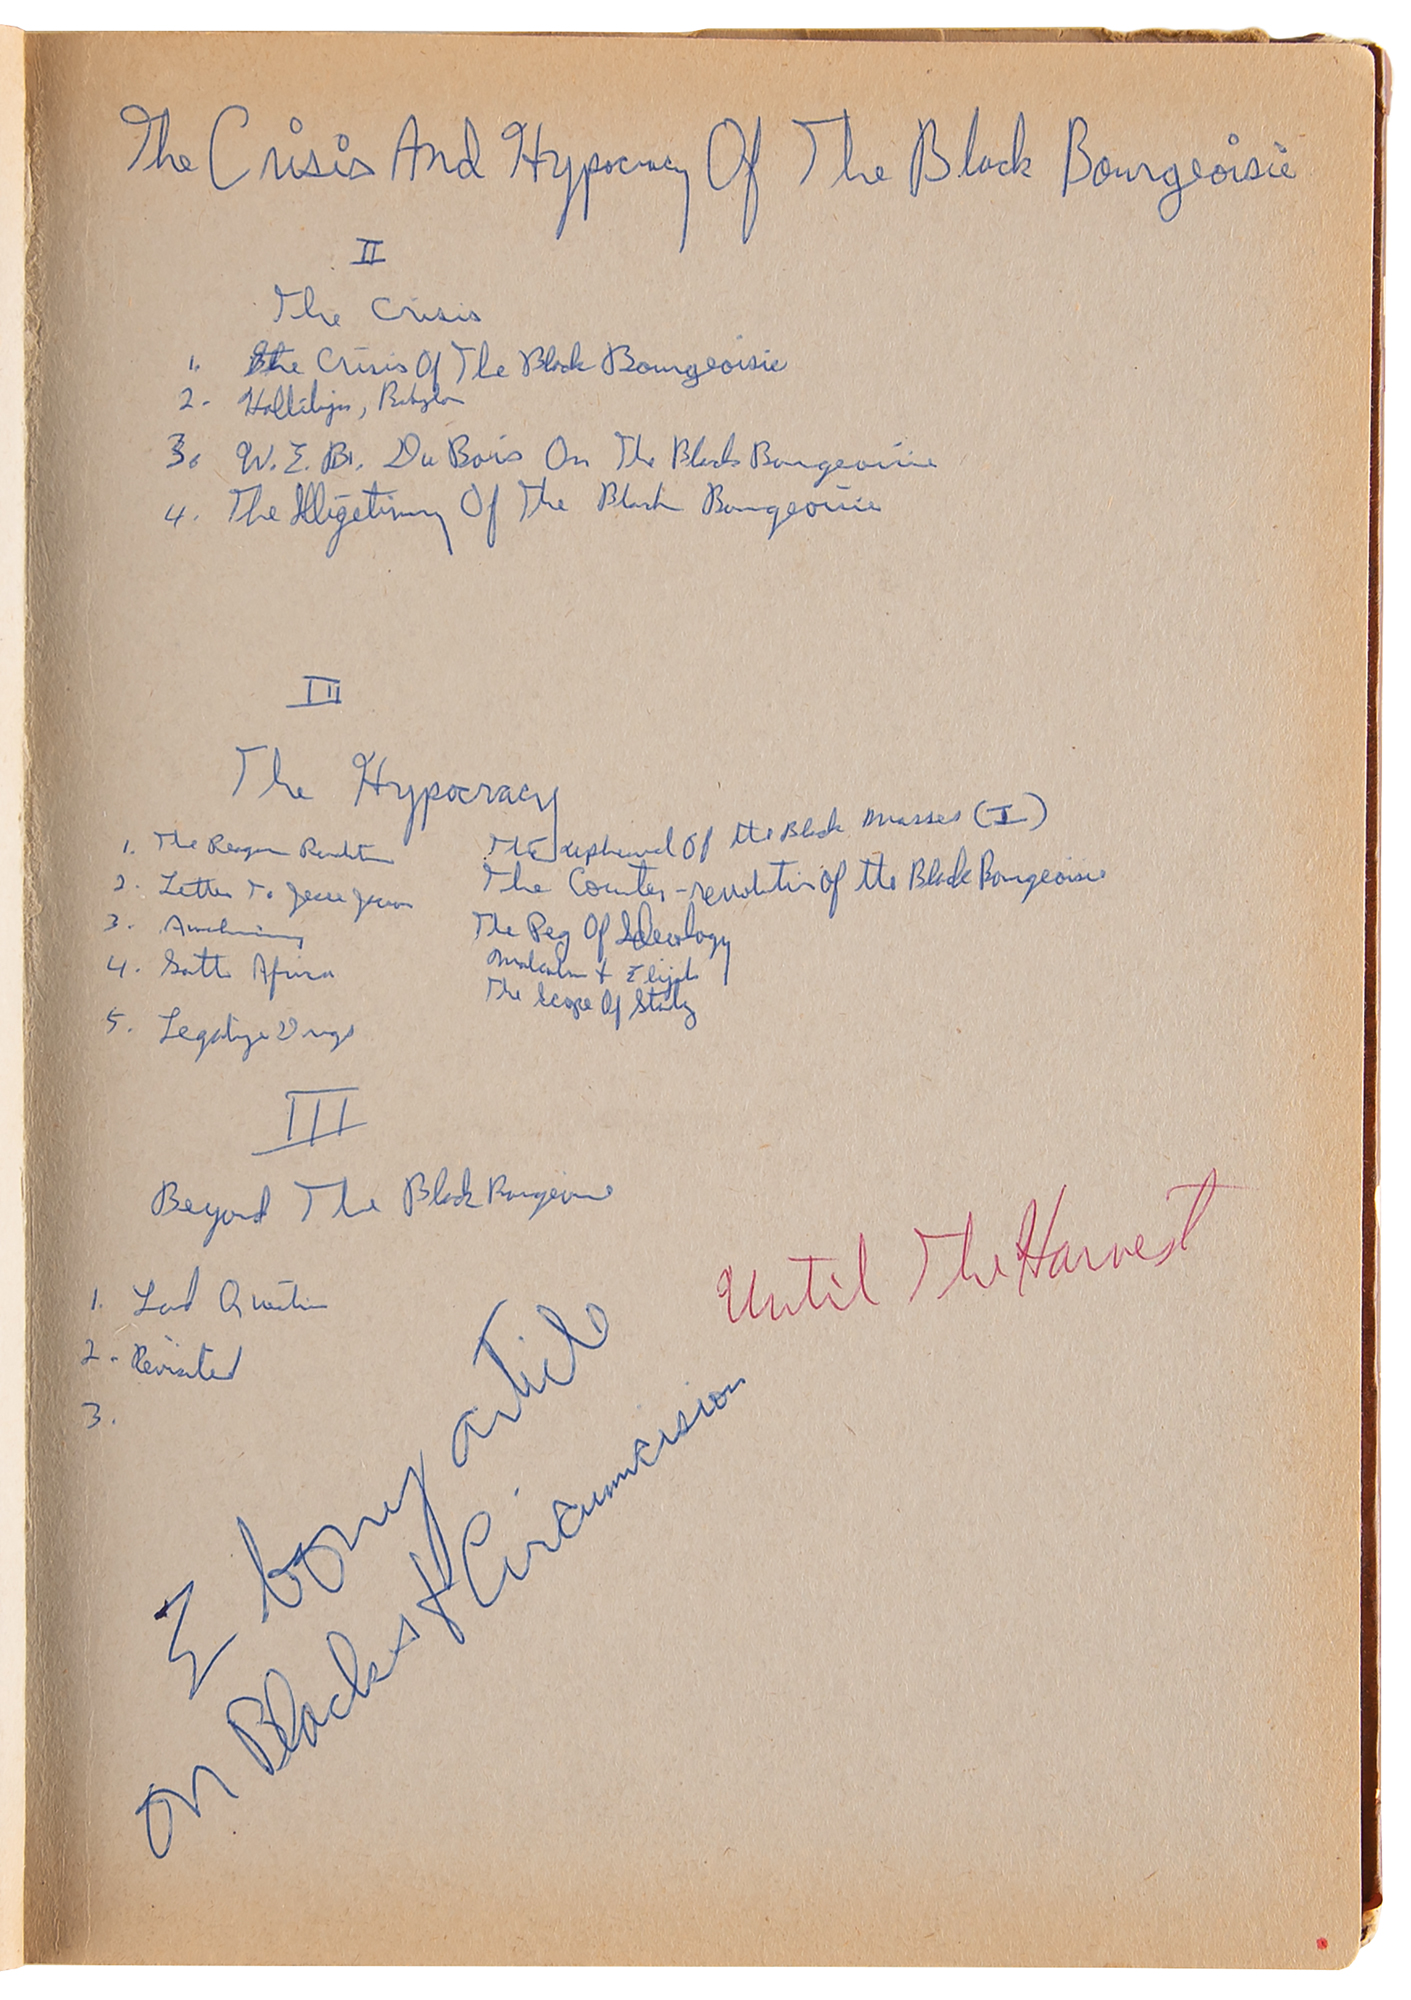 The Crisis And Hypocracy Of The Black Bourgeoisie
II
The Crisis
1. The Crisis Of The Black Bourgeoisie
2. Babylon
3. W. E. B. Du Bois On The Black Bourgeoisie
4. The Of The Black Bourgeoisie
III
The Hypocracy
1. The Reagan
2. Letter To Jesse
3. Awakening
4. South Africa
5. Legalize Drugs
The Of the Black Masses (I)
The Counter-revolution of the Black Bourgeoisie
The Peg Of Ideology
Malcolm & Elijah
The Scope Of Study
III
Beyond The Black Bourgeoisie
1. Land Question
2. Revisited
3.
Until The Harvest
Ebony article
on Blacks & Circumcision